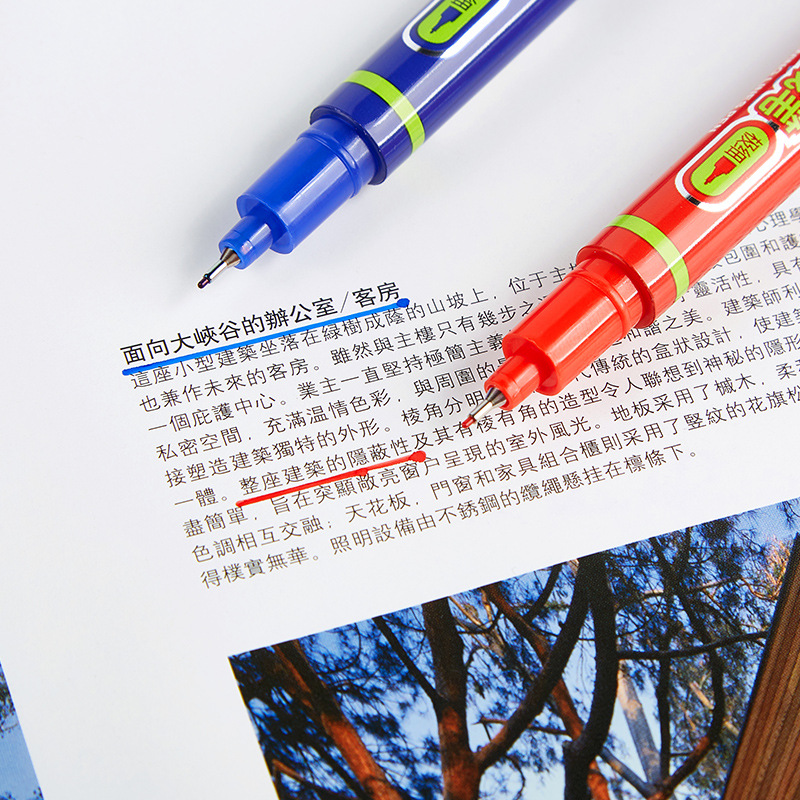 极细
极细
面向大峽谷的辦公室/客房
這座小型建築坐落在綠樹成蔭的山坡上，位于主
也兼作未來的客房。雖然與主樓只有幾步之 靈活性，具有
一個庇護中心。業主一直堅持極簡主義 和諧之美。建築師利
私密空間，充滿温情色彩，與周圍的 代傳統的盒狀設計，使建
接塑造建築獨特的外形。棱角分明 有棱有角的造型令人聯想到神秘的隱形
一體。整座建築的隱蔽性及其 的室外風光。地板采用了槭木，柔
盡簡單，旨在突顯敞亮窗户呈現 櫃則采用了豎紋的花旗松
色調相互交融；天花板，門窗和家具組合
得樸實無華。照明設備由不銹鋼的纜繩懸挂在檩條下。